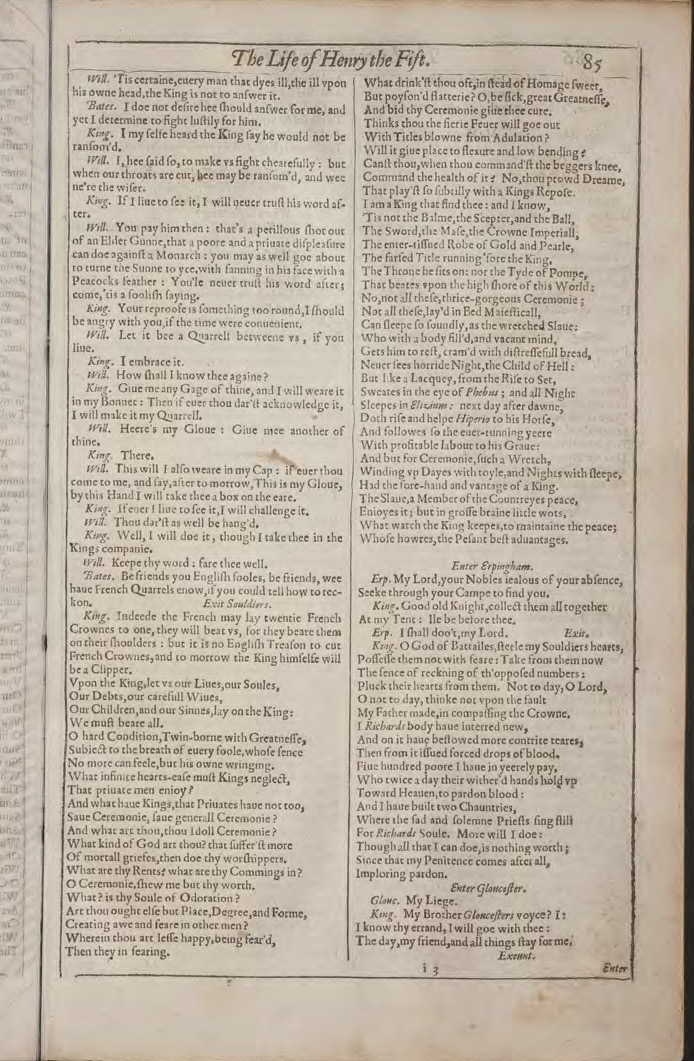 The Life of Henry the Fift. 85
Will. 'Tis certaine, euery man that dyes ill, the ill vpon
his owne head, the King is not to anſwer it.
Bates. I doe not deſire hee ſhould anſwer for me, and
yet I determine to fight luſtily for him.
King. I my ſelfe heard the King ſay he would not be
ranſom'd.
Will. I, hee ſaid ſo, to make vs fight chearefully: but
when our throats are cut, hee may be ranſom'd, and wee
ne're the wiſer.
King. If I liue to ſee it, I will neuer truſt his word af-
ter.
Will. You pay him then: that's a perillous ſhot out
of an Elder Gunne, that a poore and a priuate diſpleaſure
can doe againſt a Monarch: you may as well goe about
to turne the Sunne to yce, with fanning in his face with a
Peacocks feather: You'le neuer truſt his word after;
come, 'tis a fooliſh ſaying.
King. Your reproofe is ſomething too round, I ſhould
be angry with you, if the time were conuenient.
Will. Let it bee a Quarrell betweene vs, if you
liue.
King. I embrace it.
Will. How ſhall I know thee againe?
King. Giue me any Gage of thine, and I will weare it
in my Bonnet: Then if euer thou dar'ſt acknowledge it,
I will make it my Quarrell.
Will. Heere's my Gloue: Giue mee another of
thine.
King. There.
Will. This will I alſo weare in my Cap: if euer thou
come to me, and ſay, after to morrow, This is my Gloue,
by this Hand I will take thee a box on the eare.
King. If euer I liue to ſee it, I will challenge it.
Will. Thou dar'ſt as well be hang'd.
King. Well, I will doe it, though I take thee in the
Kings companie.
Will. Keepe thy word: fare thee well.
Bates. Be friends you Engliſh fooles, be friends, wee
haue French Quarrels enow, if you could tell how to rec-
kon. Exit Souldiers.
King. Indeede the French may lay twentie French
Crownes to one, they will beat vs, for they beare them
on their ſhoulders: but it is no Engliſh Treaſon to cut
French Crownes, and to morrow the King himſelfe will
be a Clipper.
Vpon the King, let vs our Liues, our Soules,
Our Debts, our carefull Wiues,
Our Children, and our Sinnes, lay on the King:
We muſt beare all.
O hard Condition, Twin-borne with Greatneſſe,
Subiect to the breath of euery foole, whoſe ſence
No more can feele, but his owne wringing.
What infinite hearts-eaſe muſt Kings neglect,
That priuate men enioy?
And what haue Kings, that Priuates haue not too,
Saue Ceremonie, ſaue generall Ceremonie?
And what art thou, thou Idoll Ceremonie?
What kind of God art thou? that ſuffer'ſt more
Of mortall griefes, then doe thy worſhippers.
What are thy Rents? what are thy Commings in?
O Ceremonie, ſhew me but thy worth.
What? is thy Soule of Odoration?
Art thou ought elſe but Place, Degree, and Forme,
Creating awe and feare in other men?
Wherein thou art leſſe happy, being fear'd,
Then they in fearing.
What drink'ſt thou oft, in ſtead of Homage ſweet,
But poyſon'd flatterie? O, be ſick, great Greatneſſe,
And bid thy Ceremonie giue thee cure.
Thinks thou the fierie Feuer will goe out
With Titles blowne from Adulation?
Will it giue place to flexure and low bending?
Canſt thou, when thou command'ſt the beggers knee,
Command the health of it? No, thou prowd Dreame,
That play'ſt ſo ſubtilly with a Kings Repoſe.
I am a King that find thee: and I know,
'Tis not the Balme, the Scepter, and the Ball,
The Sword, the Maſe, the Crowne Imperiall,
The enter-tiſſued Robe of Gold and Pearle,
The farſed Title running 'fore the King,
The Throne he ſits on: nor the Tyde of Pompe,
That beates vpon the high ſhore of this World:
No, not all theſe, thrice-gorgeous Ceremonie;
Not all theſe, lay'd in Bed Maieſticall,
Can ſleepe ſo ſoundly, as the wretched Slaue:
Who with a body fill'd, and vacant mind,
Gets him to reſt, cram'd with diſtreſſefull bread,
Neuer ſees horride Night, the Child of Hell:
But like a Lacquey, from the Riſe to Set,
Sweates in the eye of Phebus; and all Night
Sleepes in Elizium: next day after dawne,
Doth riſe and helpe Hiperio to his Horſe,
And followes ſo the euer-running yeere
With profitable labour to his Graue:
And but for Ceremonie, ſuch a Wretch,
Winding vp Dayes with toyle, and Nights with ſleepe,
Had the fore-hand and vantage of a King.
The Slaue, a Member of the Countreyes peace,
Enioyes it; but in groſſe braine little wots,
What watch the King keepes, to maintaine the peace;
Whoſe howres, the Peſant beſt aduantages.
Enter Erpingham.
Erp. My Lord, your Nobles iealous of your abſence,
Seeke through your Campe to find you.
King. Good old Knight, collect them all together
At my Tent: Ile be before thee.
Erp. I ſhall doo't, my Lord. Exit.
King. O God of Battailes, ſteele my Souldiers hearts,
Poſſeſſe them not with feare: Take from them now
The ſence of reckning of th'oppoſed numbers:
Pluck their hearts from them. Not to day, O Lord,
O not to day, thinke not vpon the fault
My Father made, in compaſſing the Crowne.
I Richards body haue interred new,
And on it haue beſtowed more contrite teares,
Then from it iſſued forced drops of blood.
Fiue hundred poore I haue in yeerely pay,
Who twice a day their wither'd hands hold vp
Toward Heauen, to pardon blood:
And I haue built two Chauntries,
Where the ſad and ſolemne Prieſts ſing ſtill
For Richards Soule. More will I doe:
Though all that I can doe, is nothing worth;
Since that my Penitence comes after all,
Imploring pardon.
Enter Glouceſter.
Glouc. My Liege.
King. My Brother Glouceſters voyce? I:
I know thy errand, I will goe with thee:
The day, my friend, and all things ſtay for me.
Exeunt.
i 3 Enter